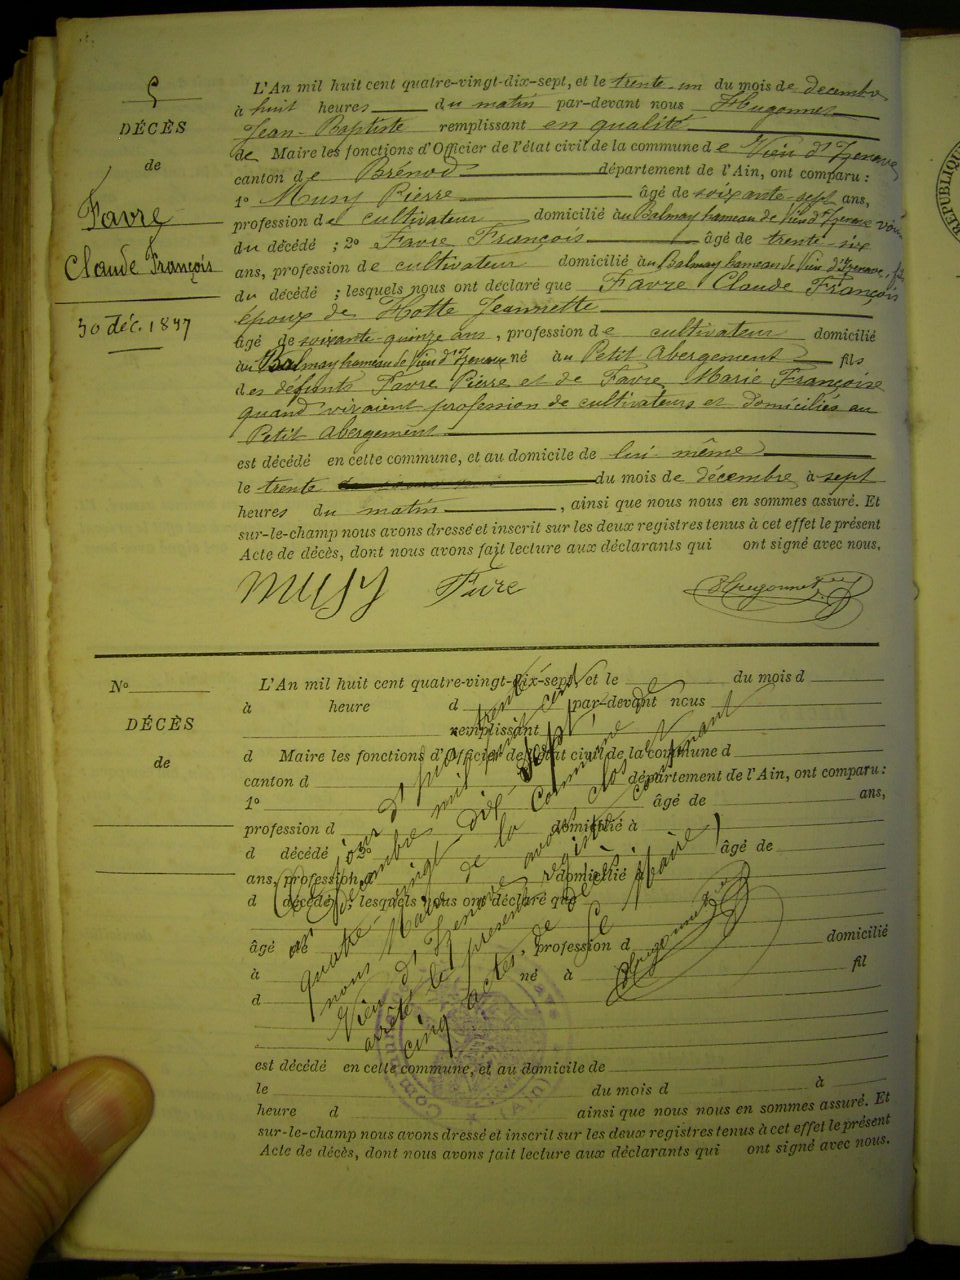 5
DÉCÈS
de
Favre
Claude François
30 déc. 1897
L'An mil huit cent quatre-vingt-dix-sept, et le trente-un du mois de décembre
à huit heures du matin par-devant nous Hugonnet
Jean-Baptiste remplissant en qualité
de Maire les fonctions d'Officier de l'état civil de la commune de Vieu d'Izenave
canton de Brénod département de l'Ain, ont comparu :
1° Musy Pierre âgé de soixante-sept ans,
profession de cultivateur domicilié au Balmay hameau de Vieu d'Izenave voisin
du décédé ; 2° Favre François âgé de trente-six
ans, profession de cultivateur domicilié au Balmay hameau de Vieu d'Izenave, fils
du décédé ; lesquels nous ont déclaré que Favre Claude François
époux de Hotte Jeannette
âgé de soixante-quinze ans, profession de cultivateur domicilié
au Balmay hameau de Vieu d'Izenave né au Petit Abergement fils
des défunts Favre Pierre et de Favre Marie Françoise
quand vivaient profession de cultivateurs et domiciliés au
Petit Abergement
est décédé en cette commune, et au domicile de lui même
le trente du mois de décembre à sept
heures du matin, ainsi que nous nous en sommes assuré. Et
sur-le-champ nous avons dressé et inscrit sur les deux registres tenus à cet effet le présent
Acte de décès, dont nous avons fait lecture aux déclarants qui ont signé avec nous.
Musy Favre Hugonnet
N°
DÉCÈS
de
L'An mil huit cent quatre-vingt-dix-sept, et le du mois d
à heure d par-devant nous
remplissant
d Maire les fonctions d'Officier de l'état civil de la commune d
canton d département de l'Ain, ont comparu :
1° âgé de ans,
profession d domicilié à
d décédé ; 2° âgé de
ans, profession d domicilié à
d décédé ; lesquels nous ont déclaré que
âgé de profession d domicilié
à né à fil
d
est décédé en cette commune, et au domicile de
le du mois d à
heure d ainsi que nous nous en sommes assuré. Et
sur-le-champ nous avons dressé et inscrit sur les deux registres tenus à cet effet le présent
Acte de décès, dont nous avons fait lecture aux déclarants qui ont signé avec nous.
Ce jour d'hui trente
un décembre mil huit cent
quatre-vingt dix-sept,
nous Maire de la Commune de
Vieu d'Izenave avons clos et
arrêté le présent registre contenant
cinq actes de décès.
Le Maire
Hugonnet
(Ain)
RÉPUBLIQUE